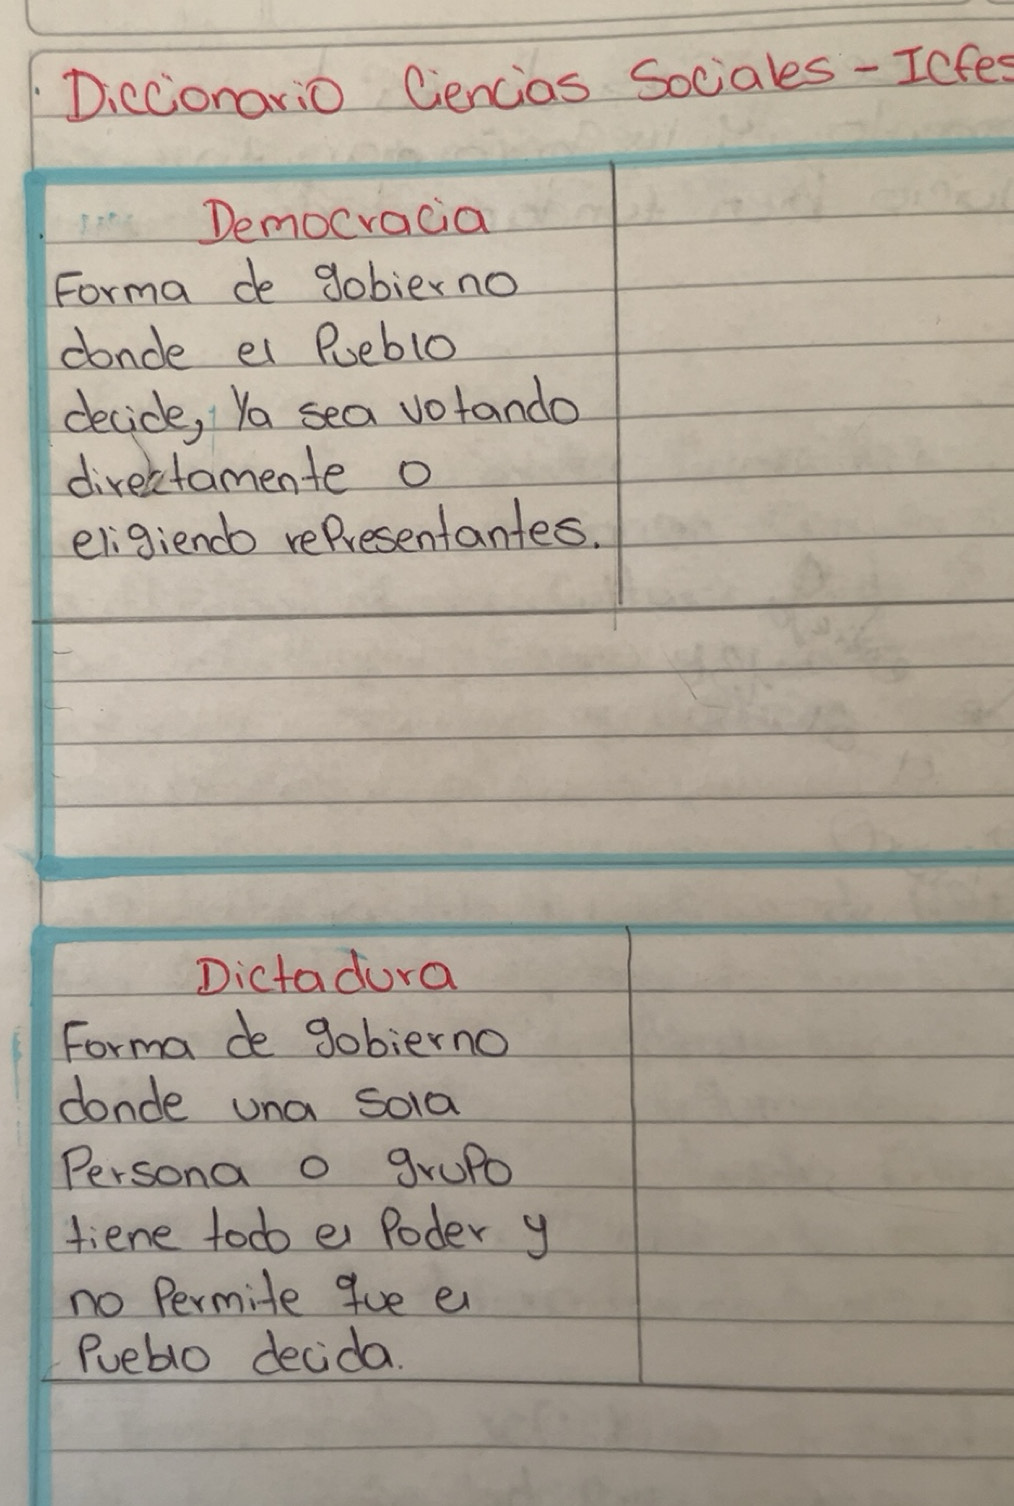 Diccionario Ciencias Sociales - Icfes
Democracia
Forma de gobierno
donde el Pueblo
decide, Ya sea votando
directamente o
eligiendo representantes.
Dictadura
Forma de gobierno
donde una sola
Persona o grupo
tiene todo el Poder y
no Permite que el
Pueblo decida.